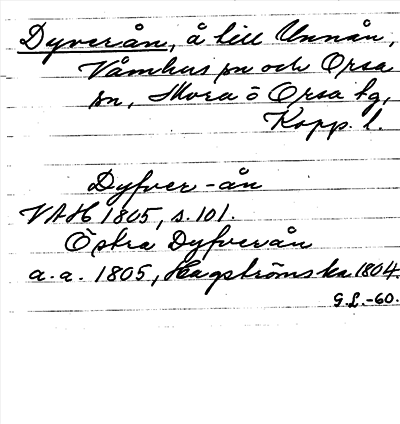 Dyverån, å till Unnån,
Våmhus sn och Orsa
sn, Mora o Orsa tg,
Kopp. l.
Dyfver-ån
VAH 1805, s. 101.
Östra Dyfverån
a.a. 1805, Hagströms ka 1804.
G.L.-60.